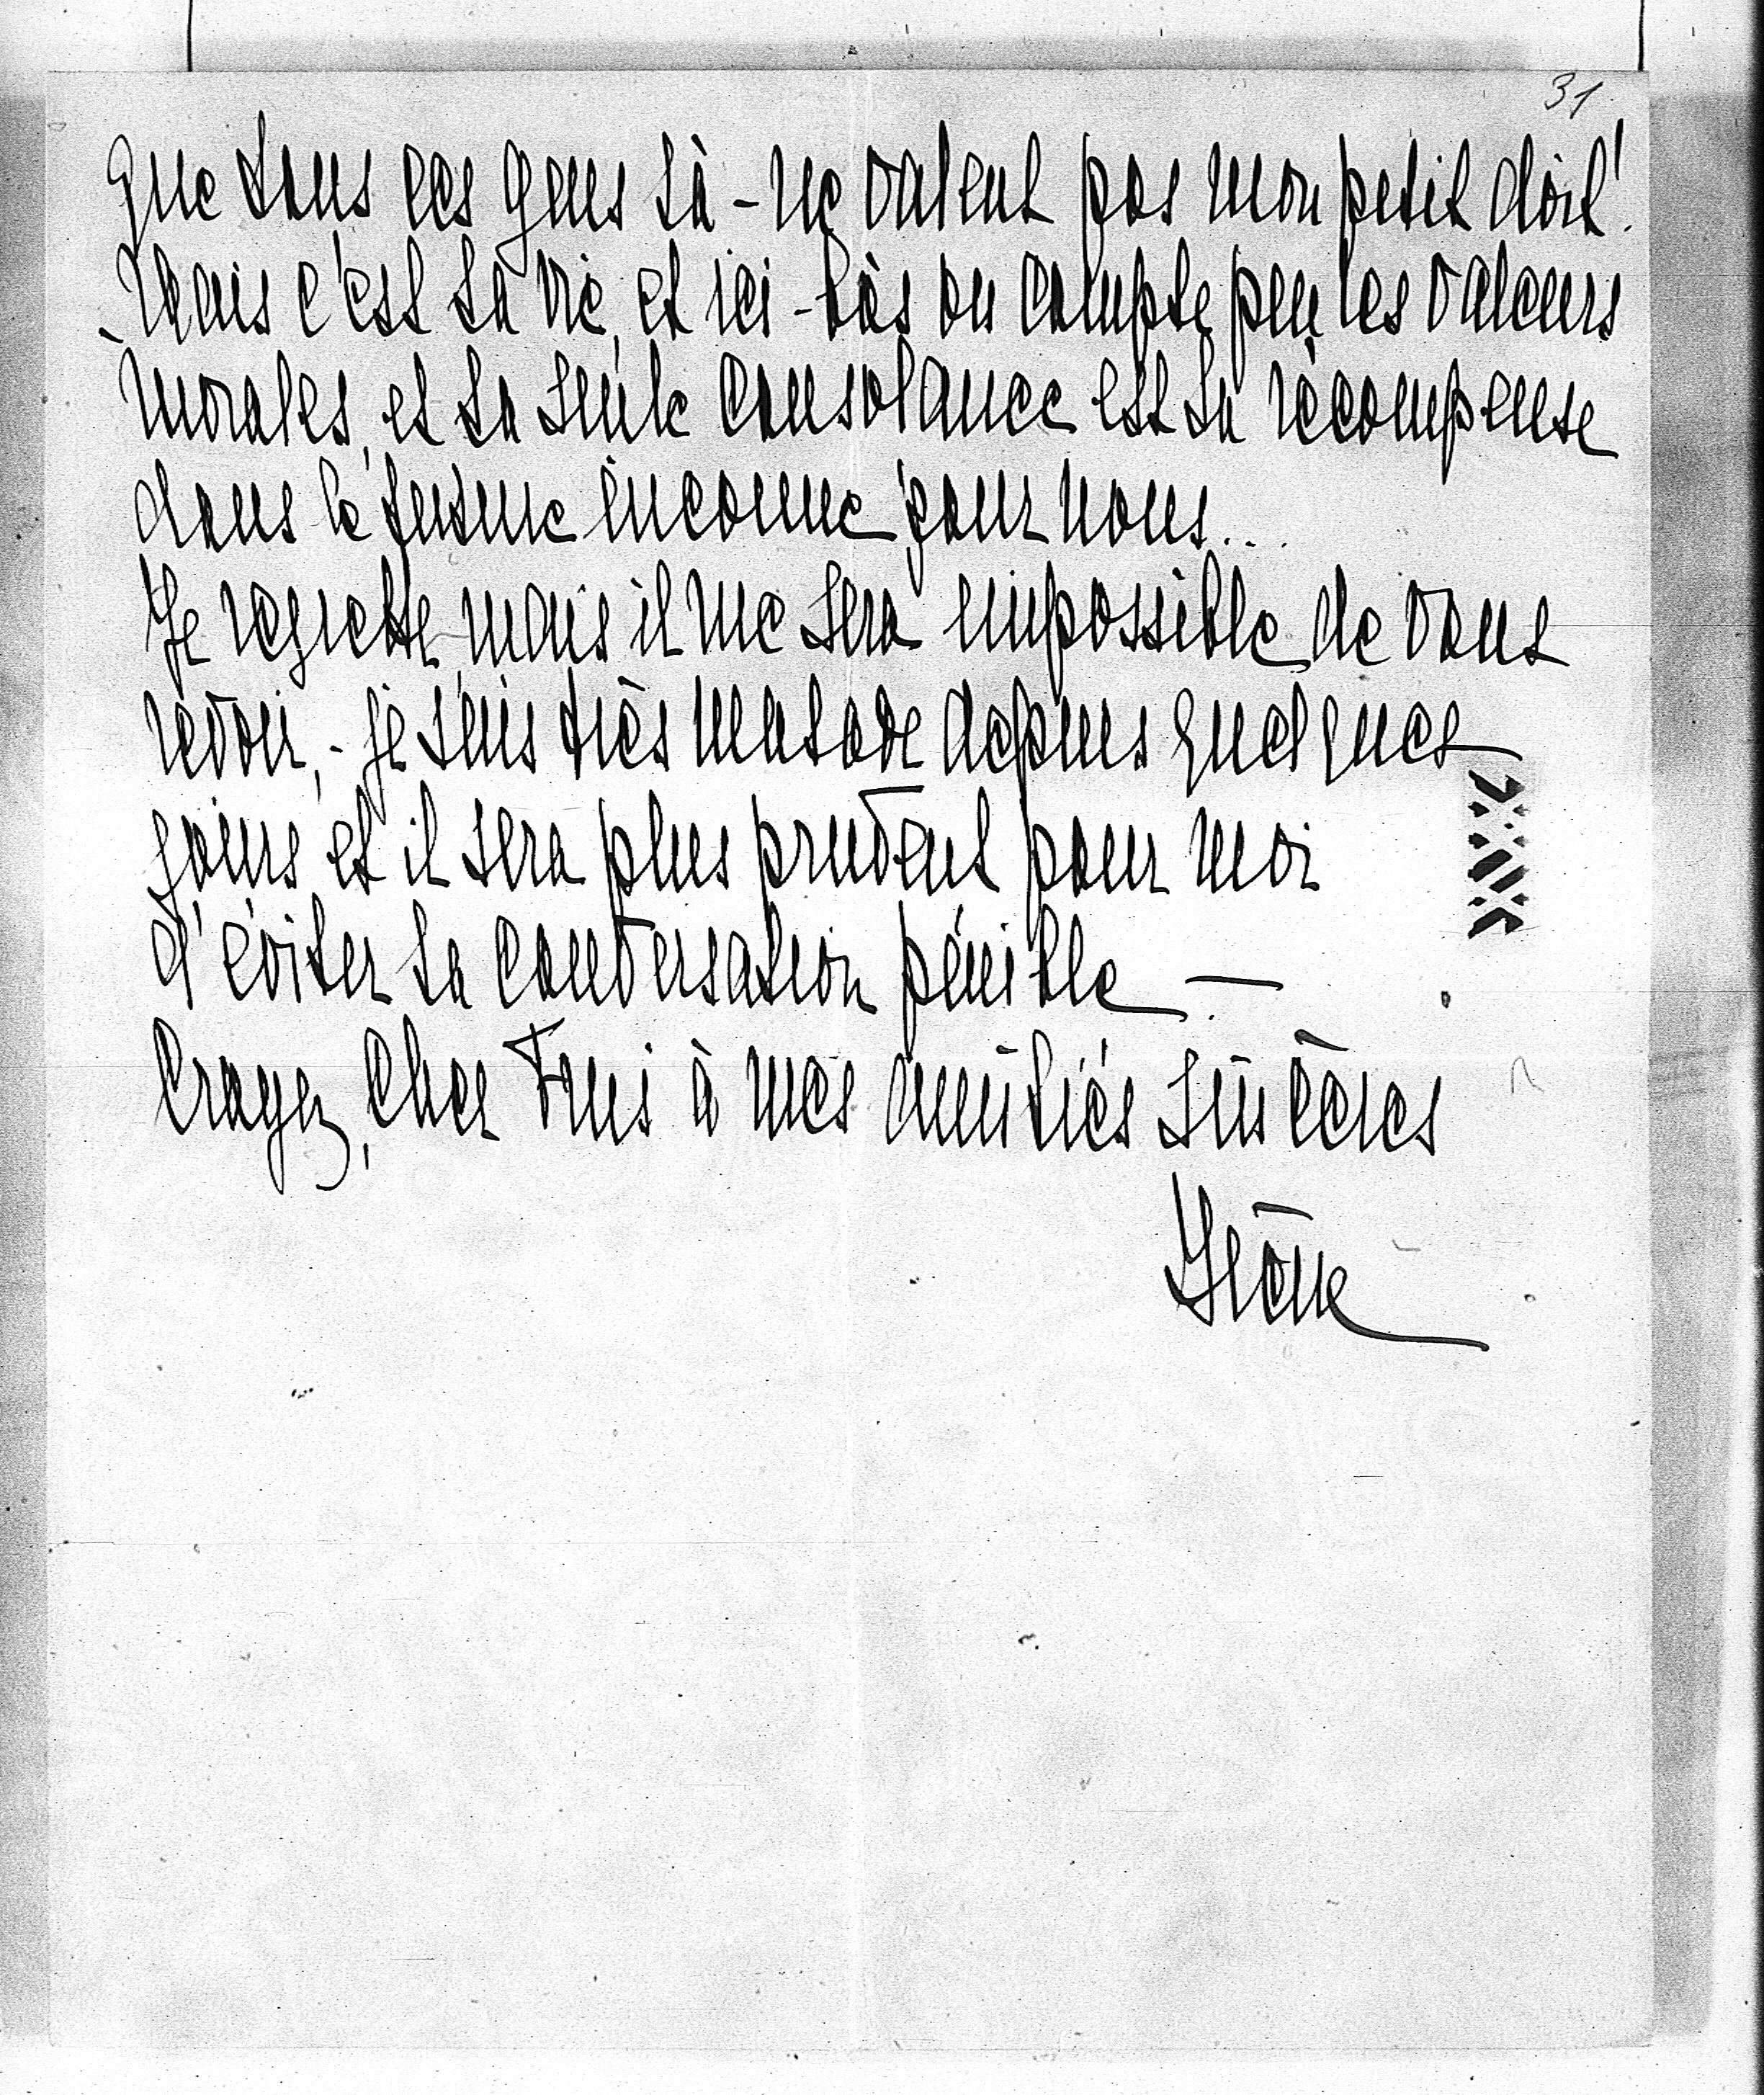 31
que tous ces gens là - ne valent pas mon petit doit!
Mais c'est la vie, et ici-bàs on compte peu les valeurs
morales, et la seule consolance est la récompense
dans le future inconnue pour nous...
Je regrette, mais il me sera impossible de vous
revoir, - je suis très malade depuis quelques
jours et il sera plus prudent pour moi
d'éviter la conversation pénible. —
Croyez, cher Ami à mes amitiés sincères
Irène